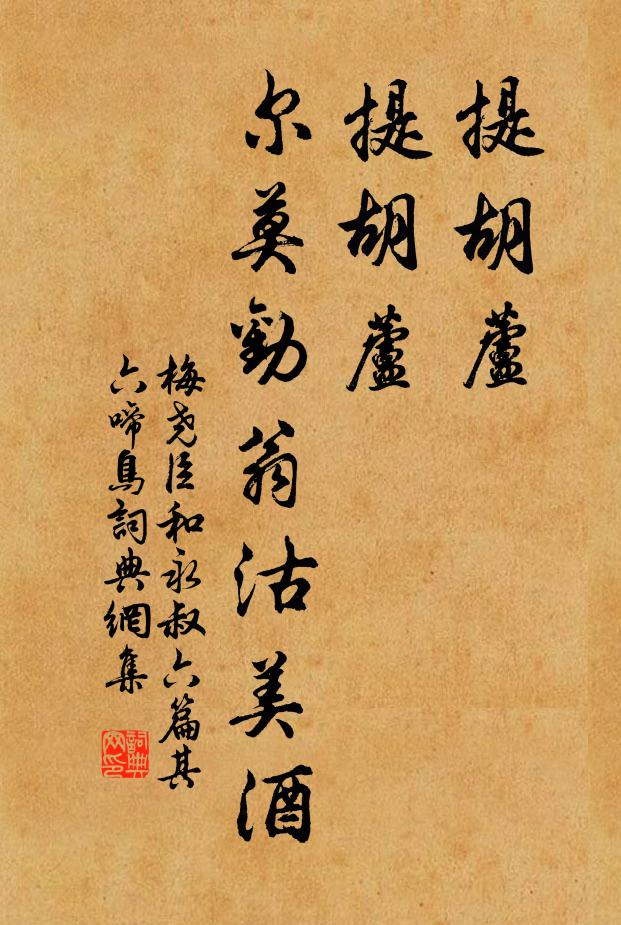 提胡蘆
提胡蘆
尔莫勸翁沽美酒
梅尧臣和永叔六篇其
六啼鳥詞典網集
詞典网印